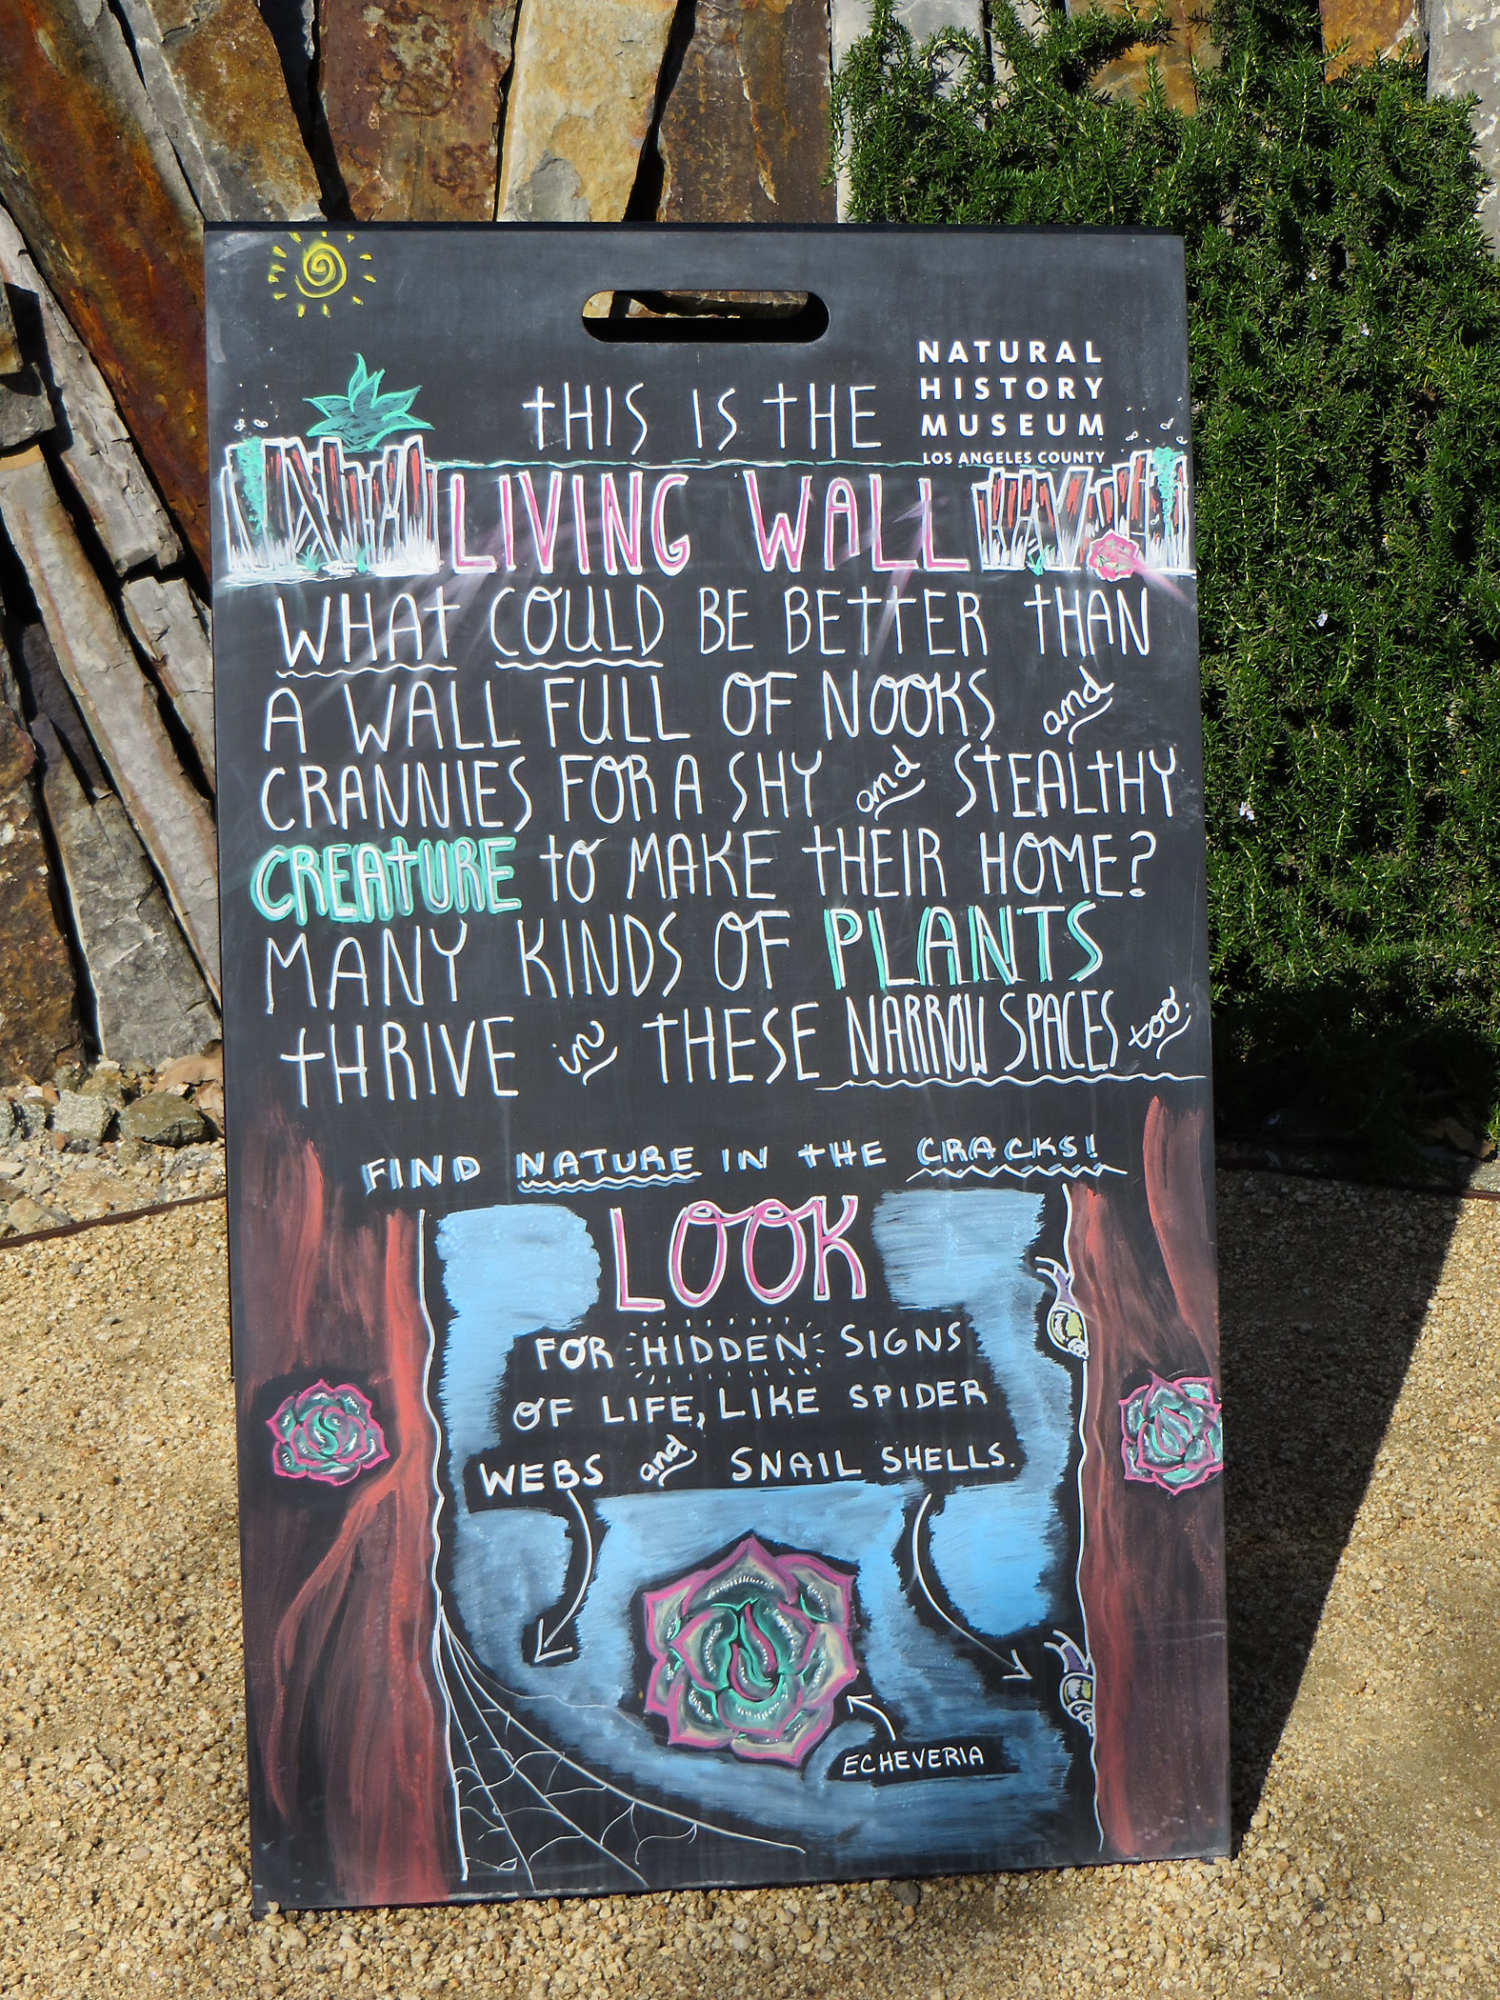 NATURAL
HISTORY
MUSEUM
LOS ANGELES COUNTY
THIS IS THE
LIVING WALL
WHAT COULD BE BETTER THAN
A WALL FULL OF NOOKS and
CRANNIES FOR A SHY and STEALTHY
CREATURE TO MAKE THEIR HOME?
MANY KINDS OF PLANTS
THRIVE in THESE NARROW SPACES too.
FIND NATURE IN THE CRACKS!
LOOK
FOR HIDDEN SIGNS
OF LIFE, LIKE SPIDER
WEBS and SNAIL SHELLS.
ECHEVERIA